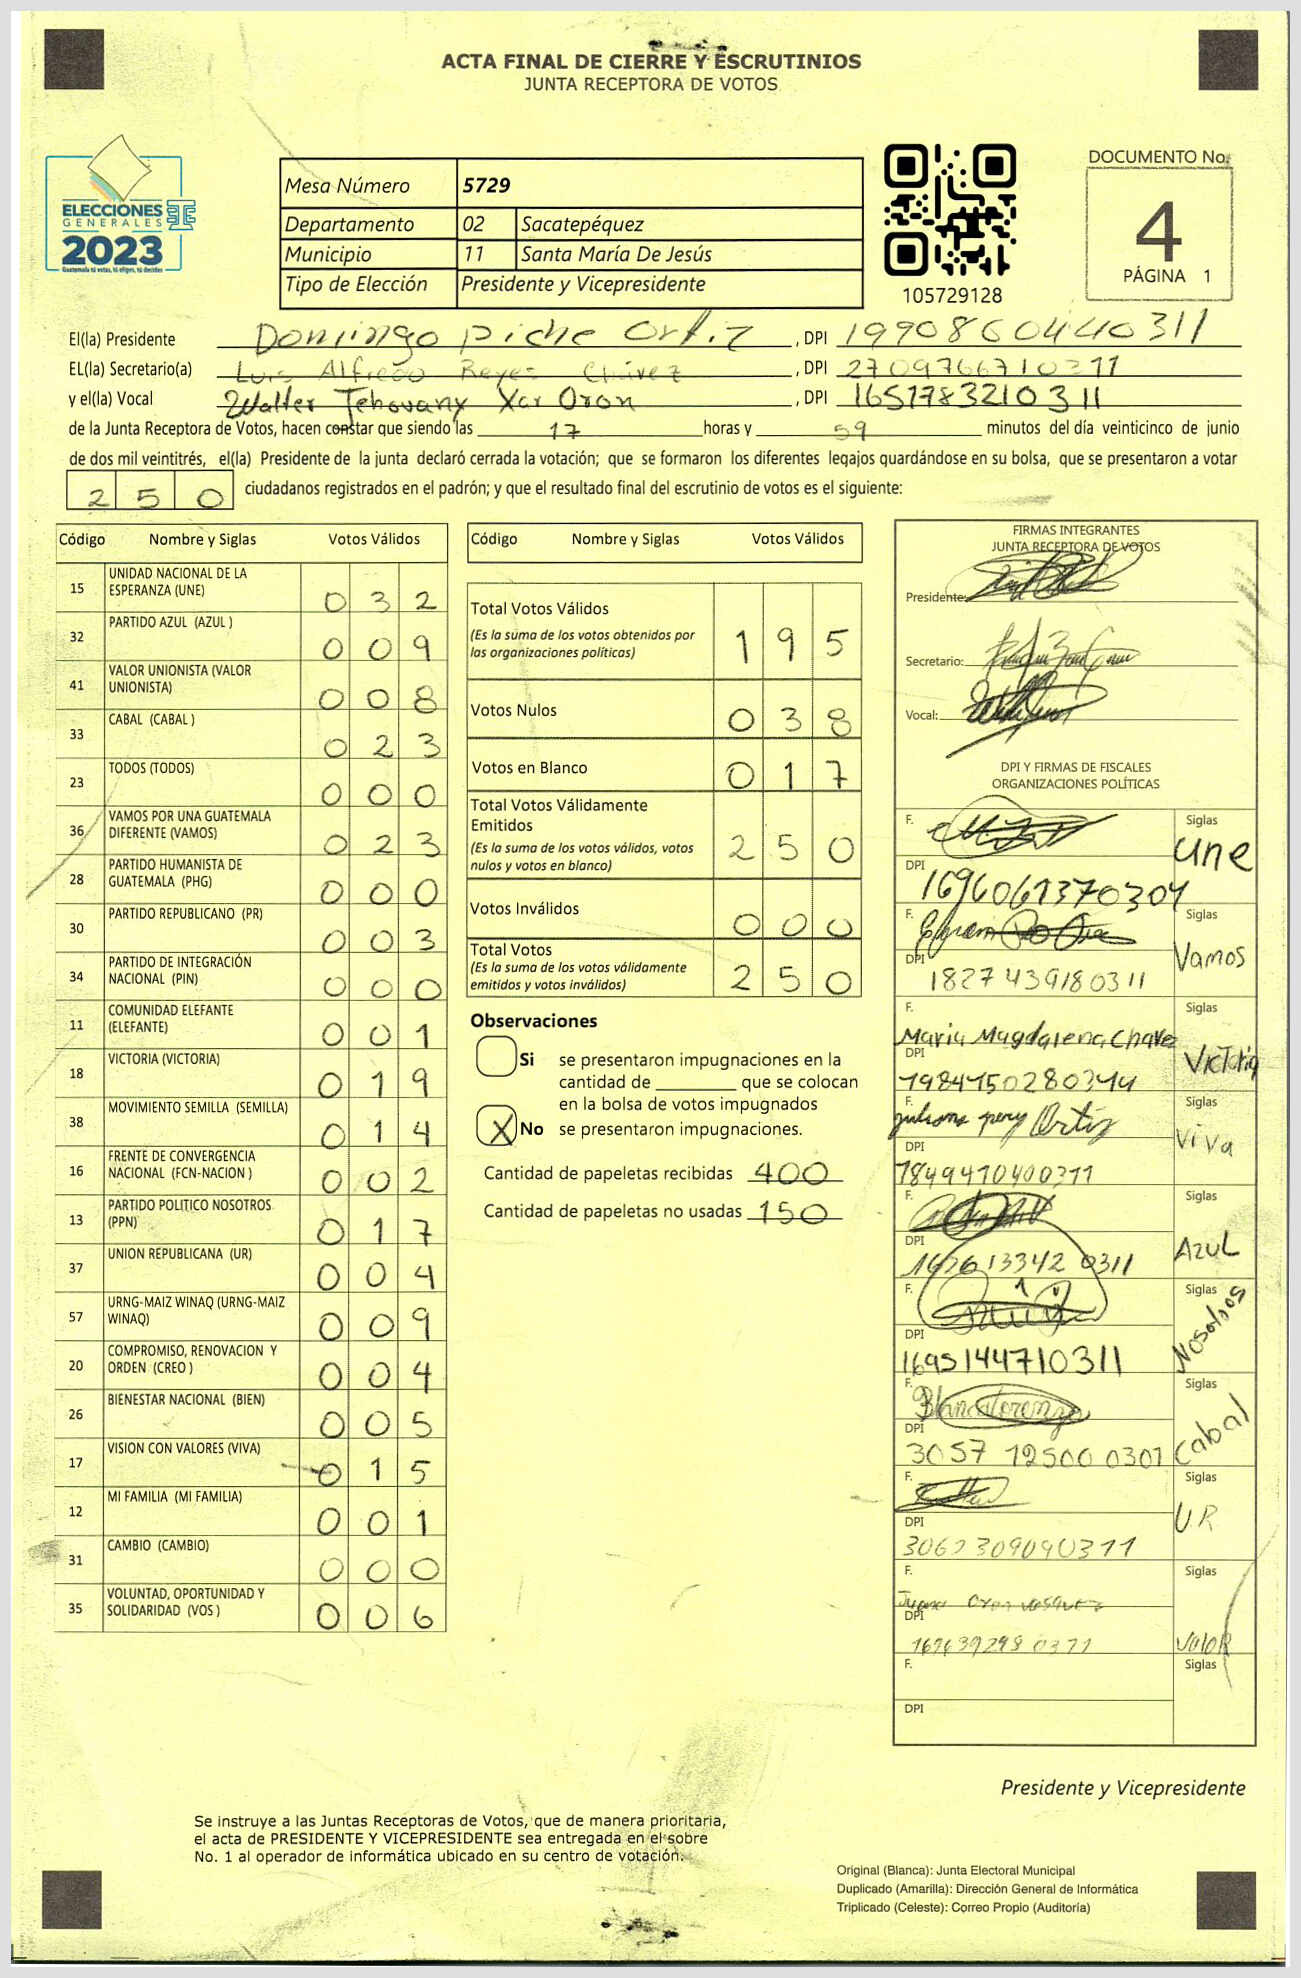 ACTA FINAL DE CIERRE Y ESCRUTINIOS
JUNTA RECEPTORA DE VOTOS
ELECCIONES
GENERALES
2023
Guatemala tú votas, tú eliges, tú decides
Mesa Número 5729
Departamento 02 Sacatepéquez
Municipio 11 Santa María De Jesús
Tipo de Elección Presidente y Vicepresidente
105729128
DOCUMENTO No.
4
PÁGINA 1
El(la) Presidente Domingo Piche Ortiz, DPI 1990860440311
EL(la) Secretario(a) Luis Alfredo Reyes Chávez, DPI 2709766710311
y el(la) Vocal Walter Jehovany Xar Oron, DPI 1651783210311
de la Junta Receptora de Votos, hacen constar que siendo las 17 horas y 59 minutos del día veinticinco de junio
de dos mil veintitrés, el(la) Presidente de la junta declaró cerrada la votación; que se formaron los diferentes legajos guardándose en su bolsa, que se presentaron a votar
250 ciudadanos registrados en el padrón; y que el resultado final del escrutinio de votos es el siguiente:
Código Nombre y Siglas Votos Válidos
15 UNIDAD NACIONAL DE LA
ESPERANZA (UNE) 032
32 PARTIDO AZUL (AZUL ) 009
41 VALOR UNIONISTA (VALOR
UNIONISTA) 008
33 CABAL (CABAL ) 023
23 TODOS (TODOS) 000
36 VAMOS POR UNA GUATEMALA
DIFERENTE (VAMOS) 023
28 PARTIDO HUMANISTA DE
GUATEMALA (PHG) 000
30 PARTIDO REPUBLICANO (PR) 003
34 PARTIDO DE INTEGRACIÓN
NACIONAL (PIN) 000
11 COMUNIDAD ELEFANTE
(ELEFANTE) 001
18 VICTORIA (VICTORIA) 019
38 MOVIMIENTO SEMILLA (SEMILLA) 014
16 FRENTE DE CONVERGENCIA
NACIONAL (FCN-NACION ) 002
13 PARTIDO POLITICO NOSOTROS
(PPN) 017
37 UNION REPUBLICANA (UR) 004
57 URNG-MAIZ WINAQ (URNG-MAIZ
WINAQ) 009
20 COMPROMISO, RENOVACION Y
ORDEN (CREO ) 004
26 BIENESTAR NACIONAL (BIEN) 005
17 VISION CON VALORES (VIVA) 015
12 MI FAMILIA (MI FAMILIA) 001
31 CAMBIO (CAMBIO) 000
35 VOLUNTAD, OPORTUNIDAD Y
SOLIDARIDAD (VOS ) 006
Código Nombre y Siglas Votos Válidos
Total Votos Válidos 195
(Es la suma de los votos obtenidos por
las organizaciones políticas)
Votos Nulos 038
Votos en Blanco 017
Total Votos Válidamente
Emitidos 250
(Es la suma de los votos válidos, votos
nulos y votos en blanco)
Votos Inválidos 000
Total Votos 250
(Es la suma de los votos válidamente
emitidos y votos inválidos)
Observaciones
Si se presentaron impugnaciones en la
cantidad de ________ que se colocan
en la bolsa de votos impugnados
X No se presentaron impugnaciones.
Cantidad de papeletas recibidas 400
Cantidad de papeletas no usadas 150
FIRMAS INTEGRANTES
JUNTA RECEPTORA DE VOTOS
Presidente:
Secretario:
Vocal:
DPI Y FIRMAS DE FISCALES
ORGANIZACIONES POLÍTICAS
F. Siglas une
DPI 1696061370304
F. Siglas Vamos
DPI 1827439180311
F. Maria Magdalena Chavez Siglas Victoria
DPI 1984750280344
F. Siglas Viva
DPI 7849470400311
F. Siglas AZUL
DPI 1626133420311
F. Siglas Nosotros
DPI 1695144710311
F. Siglas Cabal
DPI 3057 12500 0301
F. Siglas U.R
DPI 3062309090311
F. Siglas Valor
DPI
F. Siglas
DPI
Presidente y Vicepresidente
Se instruye a las Juntas Receptoras de Votos, que de manera prioritaria,
el acta de PRESIDENTE Y VICEPRESIDENTE sea entregada en el sobre
No. 1 al operador de informática ubicado en su centro de votación.
Original (Blanca): Junta Electoral Municipal
Duplicado (Amarilla): Dirección General de Informática
Triplicado (Celeste): Correo Propio (Auditoría)